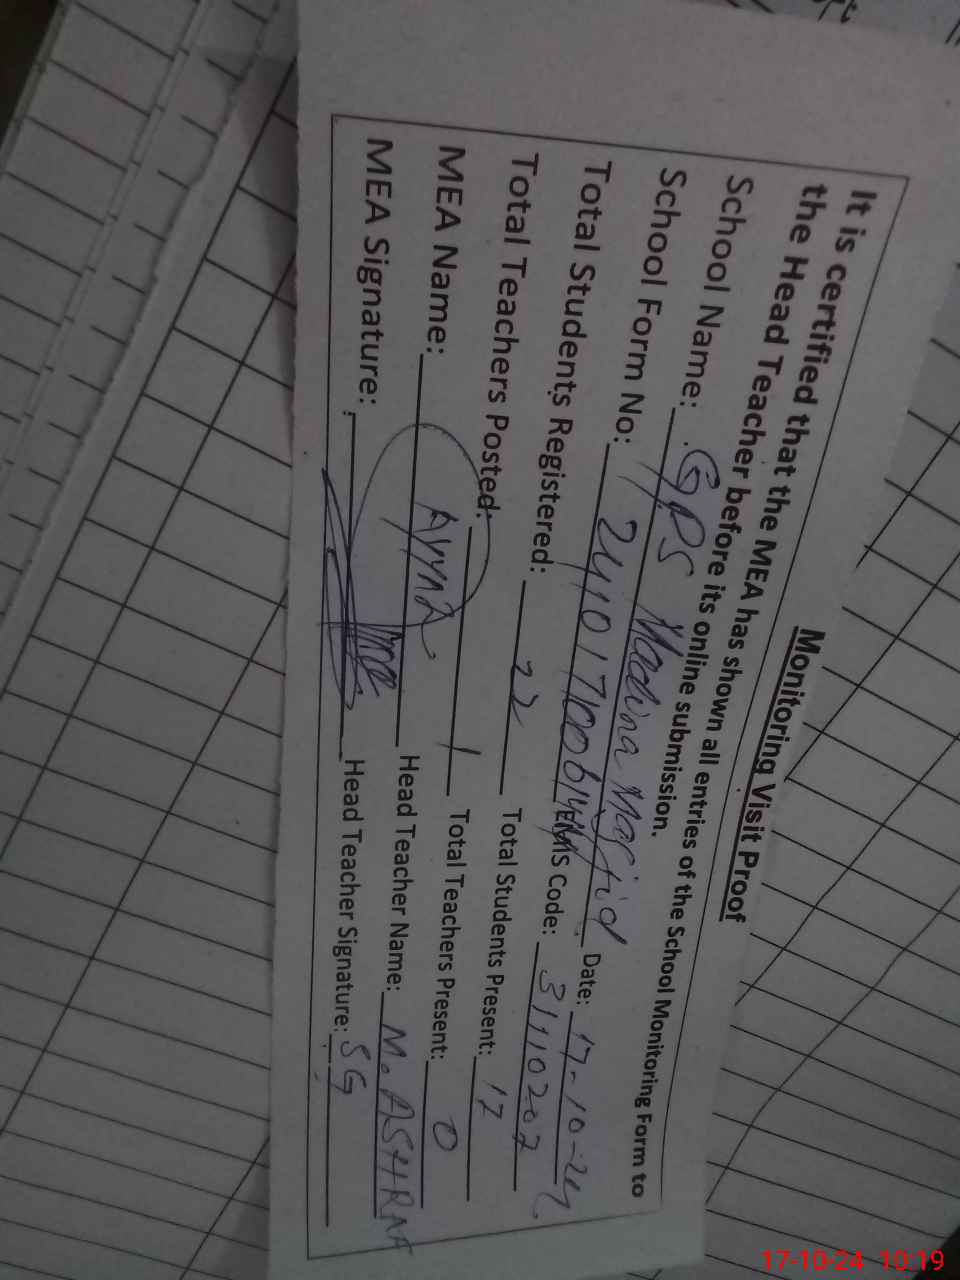 Monitoring Visit Proof
It is certified that the MEA has shown all entries of the School Monitoring Form to
the Head Teacher before its online submission.
School Name: GPS Madina Masjid Date: 17-10-24
School Form No: EMIS Code: 31110207
Total Students Registered: 22 Total Students Present: 17
Total Teachers Posted: 1 Total Teachers Present: 0
MEA Name: Head Teacher Name: M. ASHRAF
MEA Signature: Head Teacher Signature: SG
17-10-24 10:19